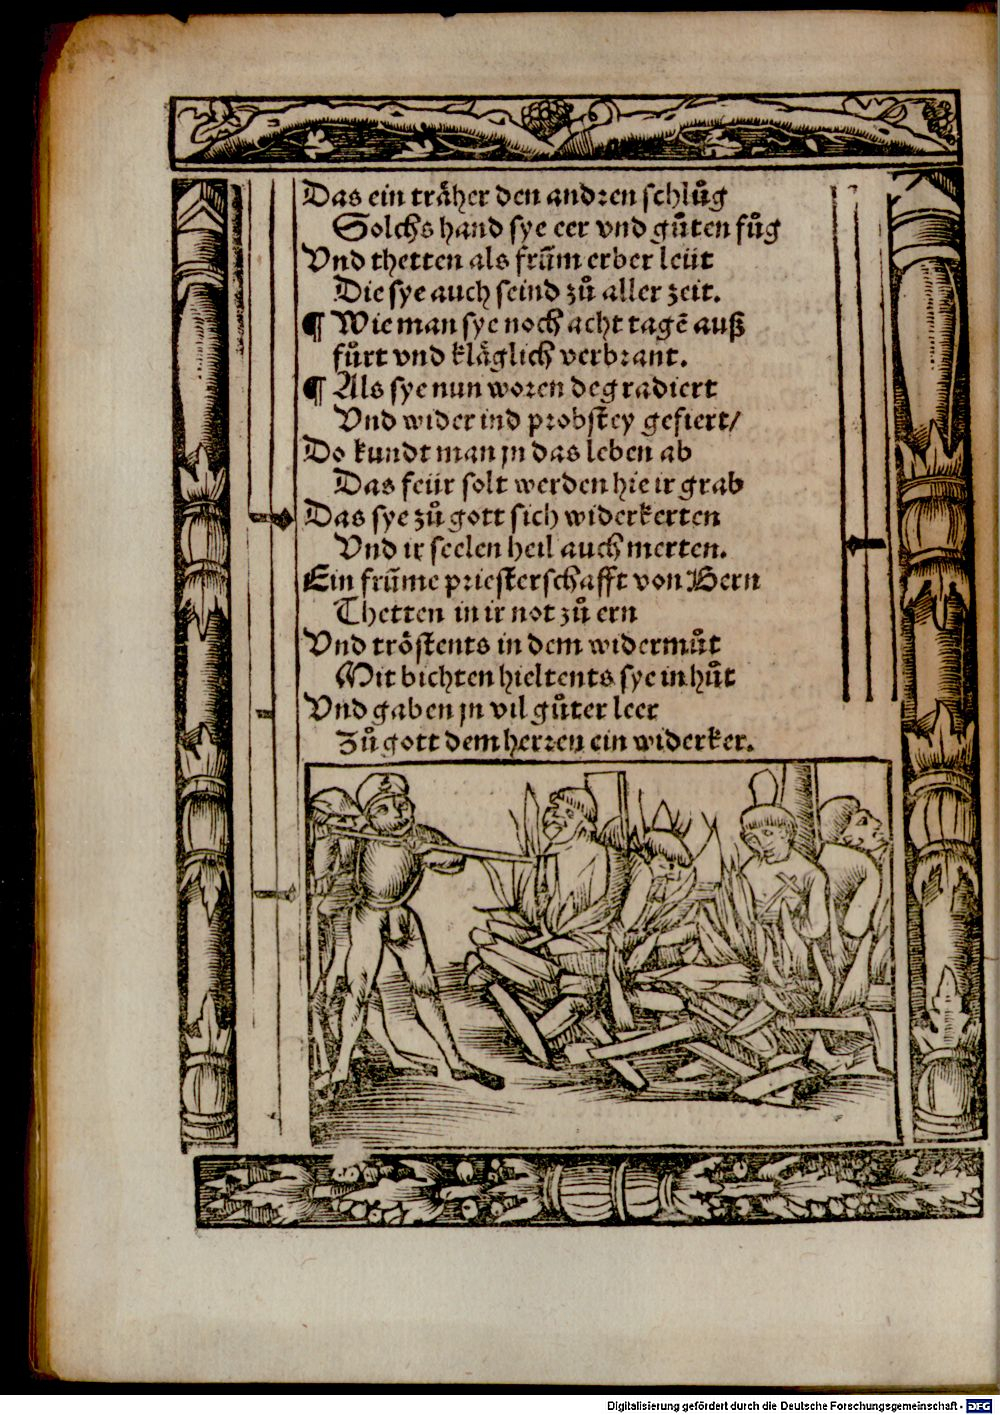 Das ein träher den andren schlůg
Solchs hand sye eer vnd gůten fůg
Vnd thetten als frūm erber leüt
Die sye auch seind zů aller zeit.
¶ Wie man sye noch acht tagē auß
fůrt vnd kläglich verbrant.
¶ Als sye nun woren degradiert
Vnd wider ind probstey gefiert/
Do kundt man jn das leben ab
Das feür solt werden hie ir grab
Das sye zů gott sich widerkerten
Vnd ir seelen heil auch merten.
Ein frūme priesterschafft von Bern
Thetten in ir not zů ern
Vnd tröstents in dem widermůt
Mit bichten hieltents sye in hůt
Vnd gaben jn vil gůter leer
Zů gott dem herren ein widerker.
Digitalisierung gefördert durch die Deutsche Forschungsgemeinschaft - DFG